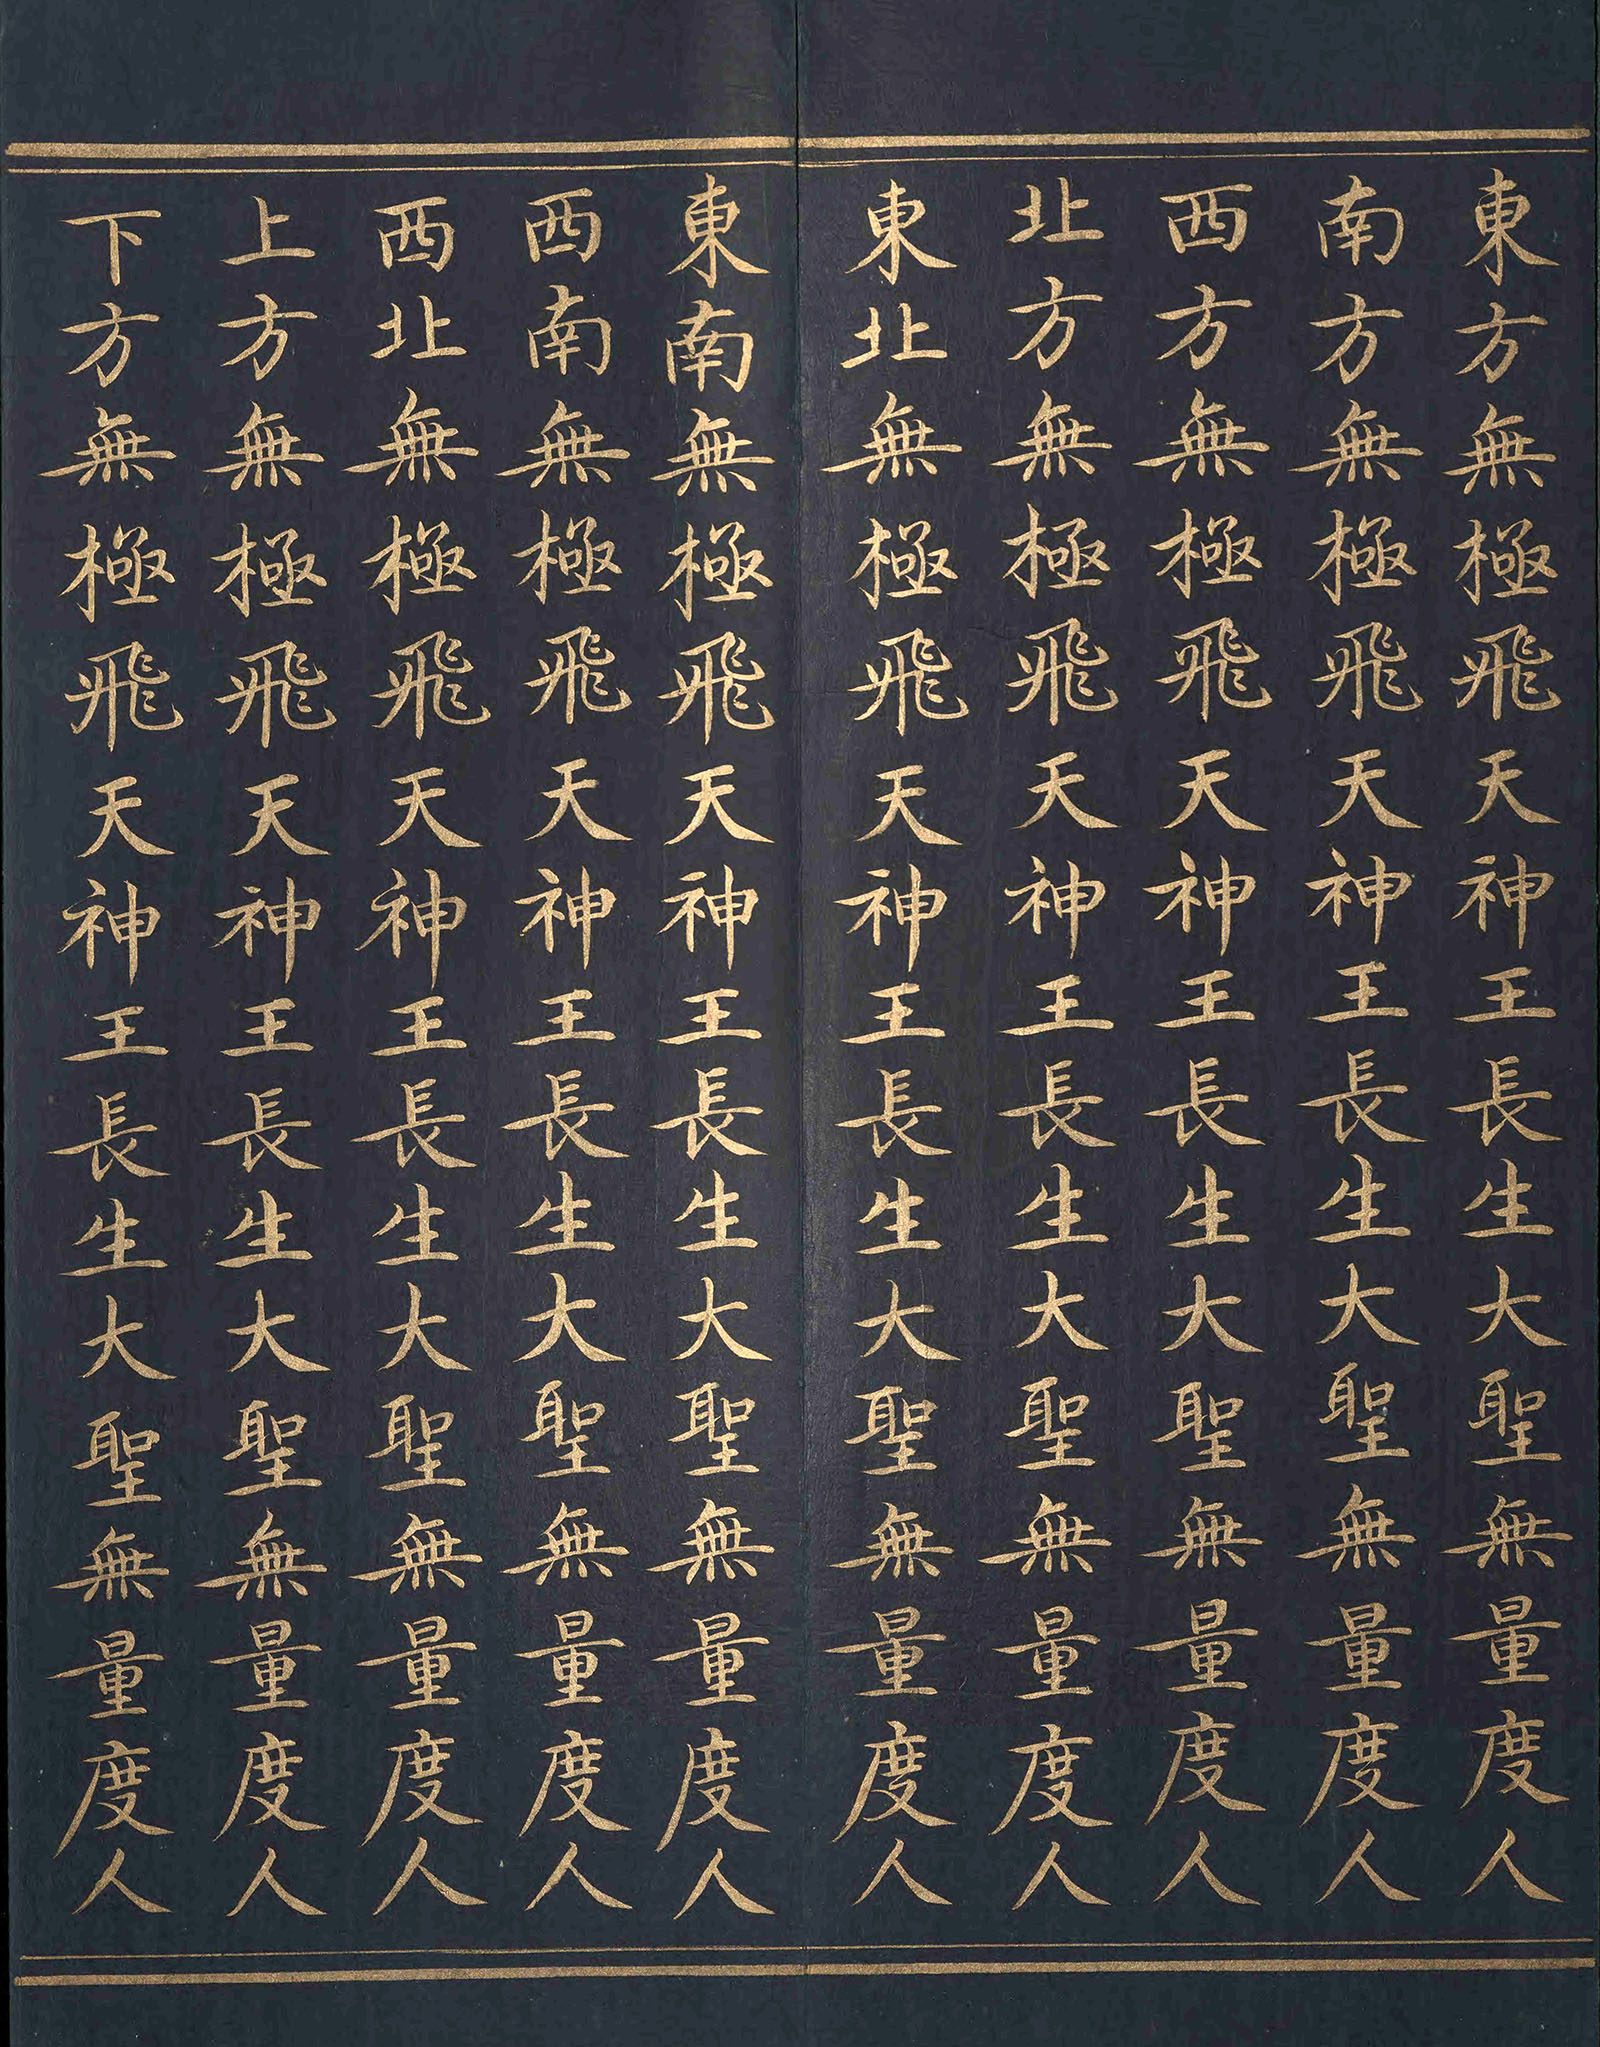 東方無極飛天神王長生大聖無量度人
南方無極飛天神王長生大聖無量度人
西方無極飛天神王長生大聖無量度人
北方無極飛天神王長生大聖無量度人
東北無極飛天神王長生大聖無量度人
東南無極飛天神王長生大聖無量度人
西南無極飛天神王長生大聖無量度人
西北無極飛天神王長生大聖無量度人
上方無極飛天神王長生大聖無量度人
下方無極飛天神王長生大聖無量度人